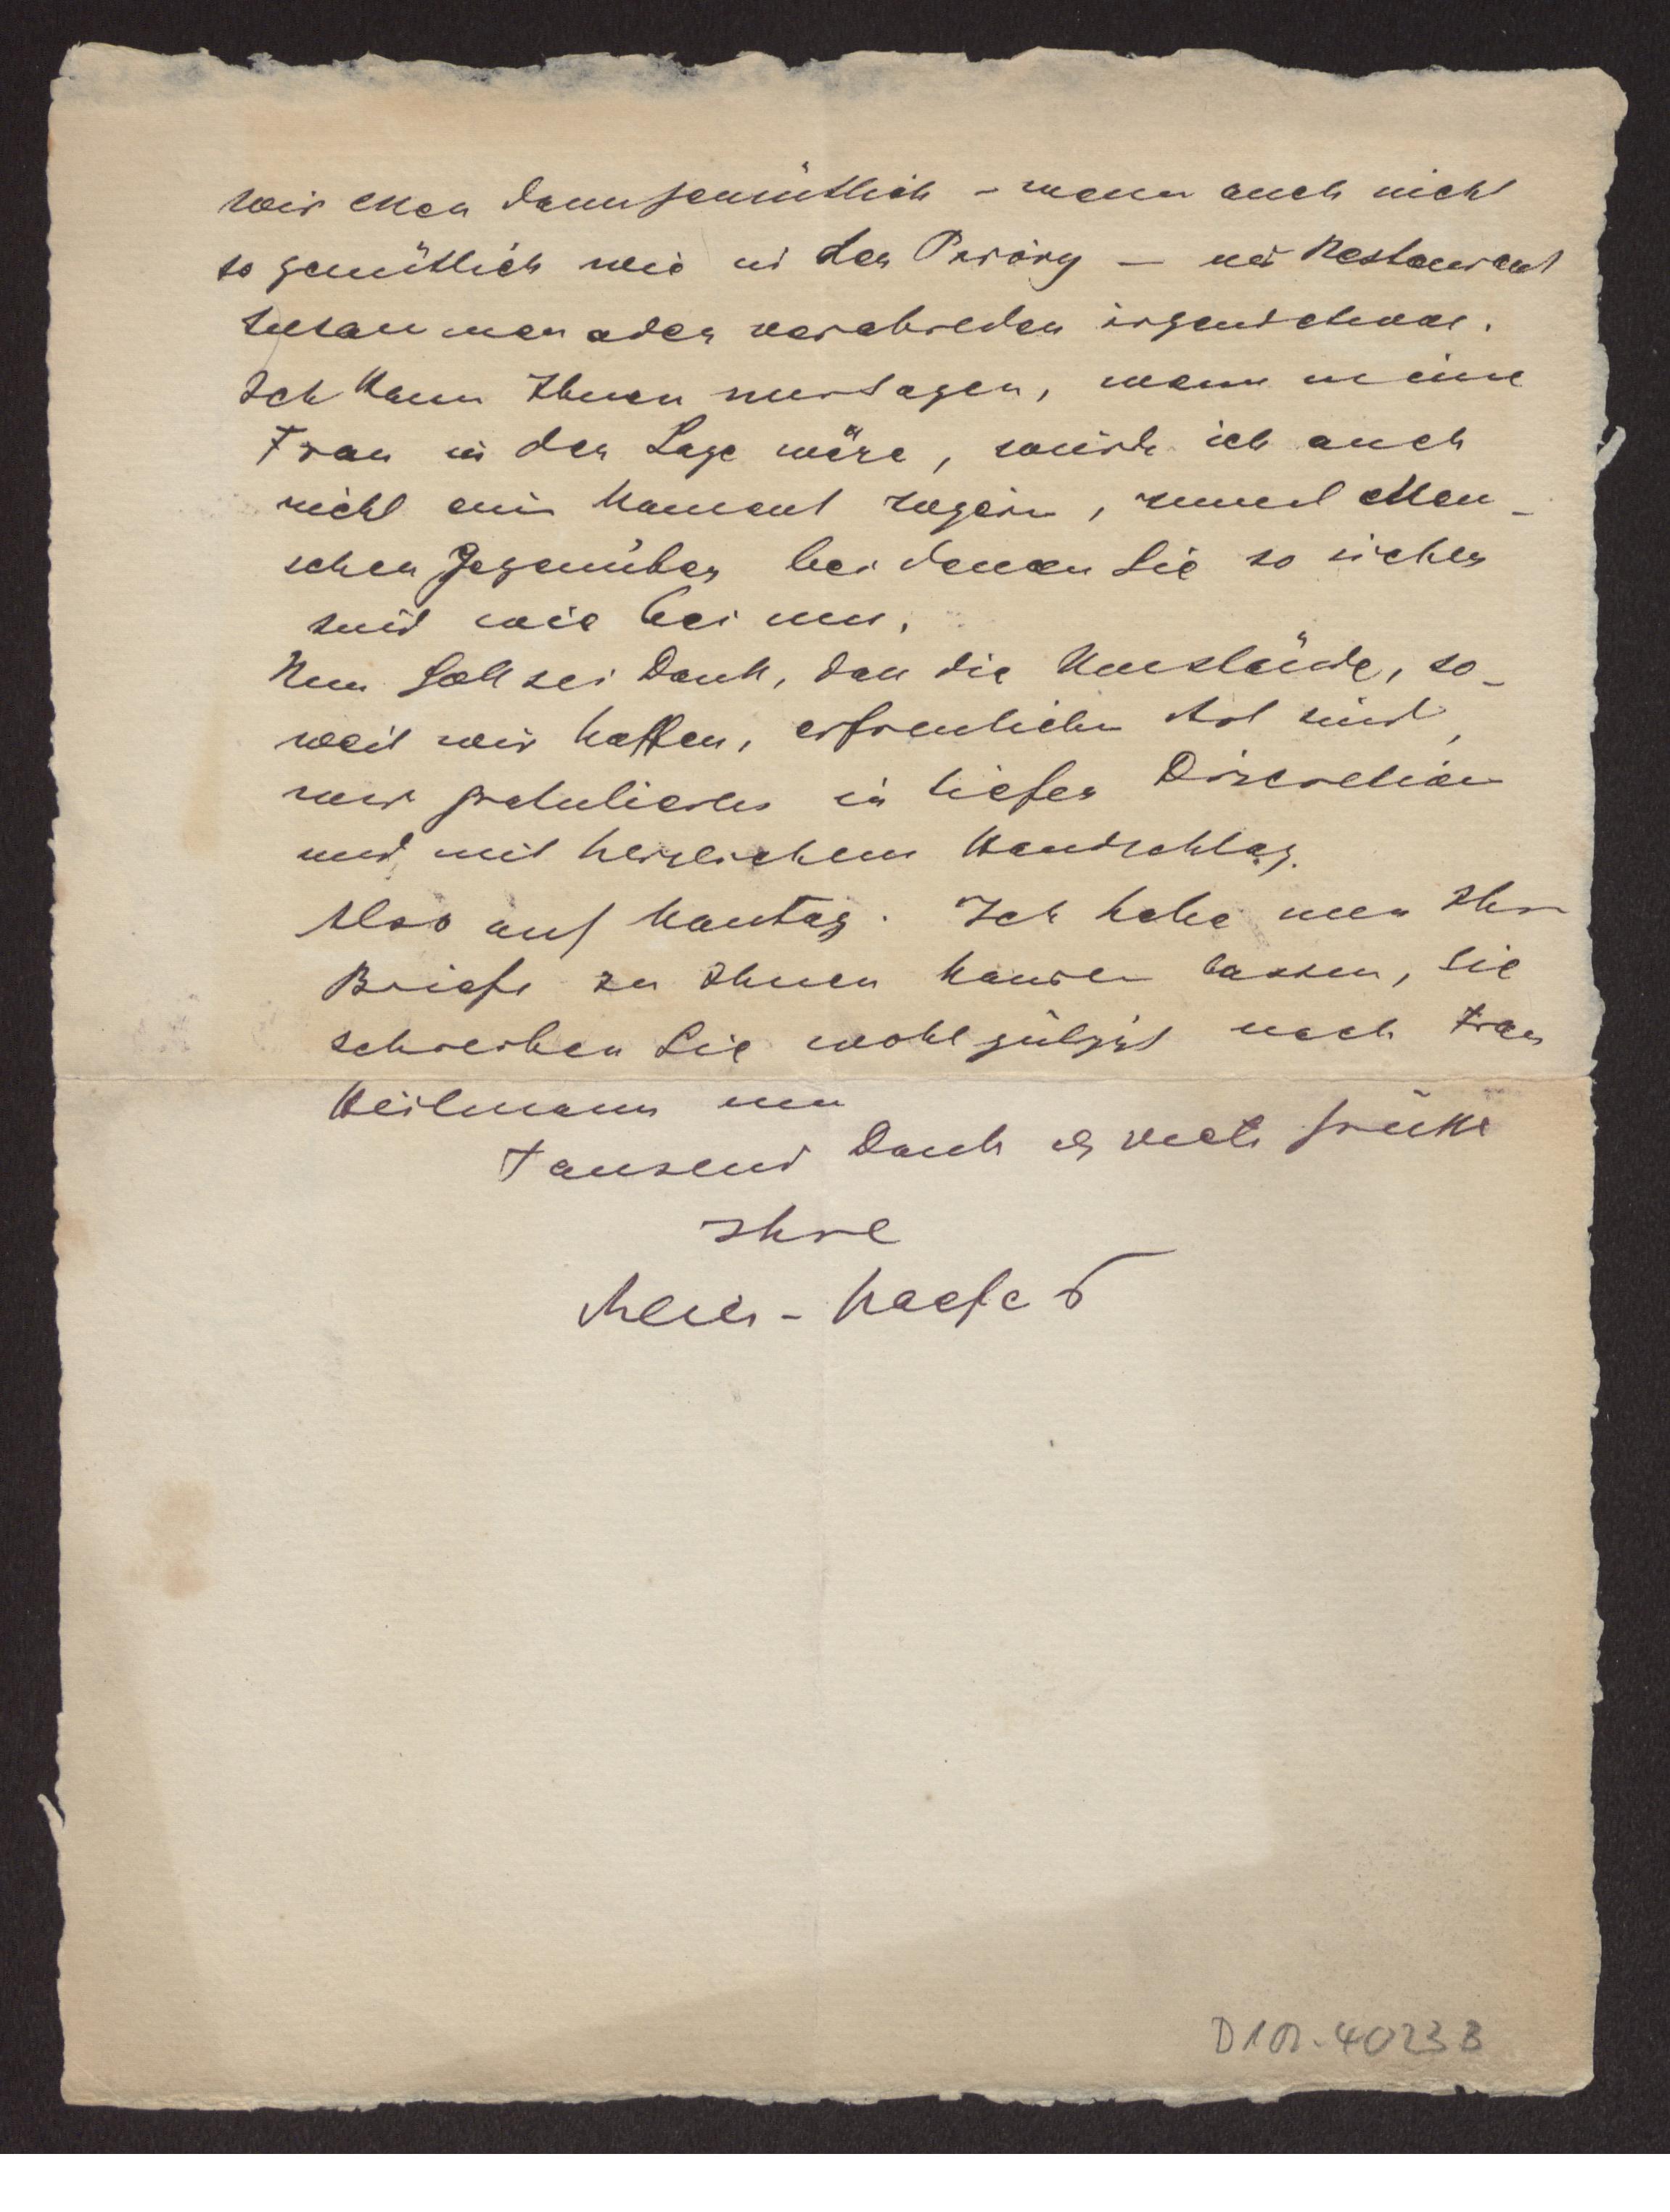 Wir essen dann gemütlich – wenn auch nicht
so gemütlich wie in der Priory – im Restaurant
zusammen oder verabreden irgendetwas.
Ich kann Ihnen nur sagen, wenn meine
Frau in der Lage wäre, würde ich auch
nicht ein Moment zögern, zumal Men-
schen gegenüber bei denen Sie so sicher
sind wie bei uns.
Nun Gott sei Dank, dass die Umstände, so-
weit wir hoffen, erfreulicher Art sind,
wir gratulieren in tiefer Discretion
und mit herzlichem Handschlag.
Also auf Montag. Ich habe nun Ihre
Briefe zu Ihnen lassen, Sie
schreiben Sie wohl gütigst nach Frau
Heilmann
Tausend Dank u viele Grüsse
Ihre
Meier-Graefes
D1R.40233